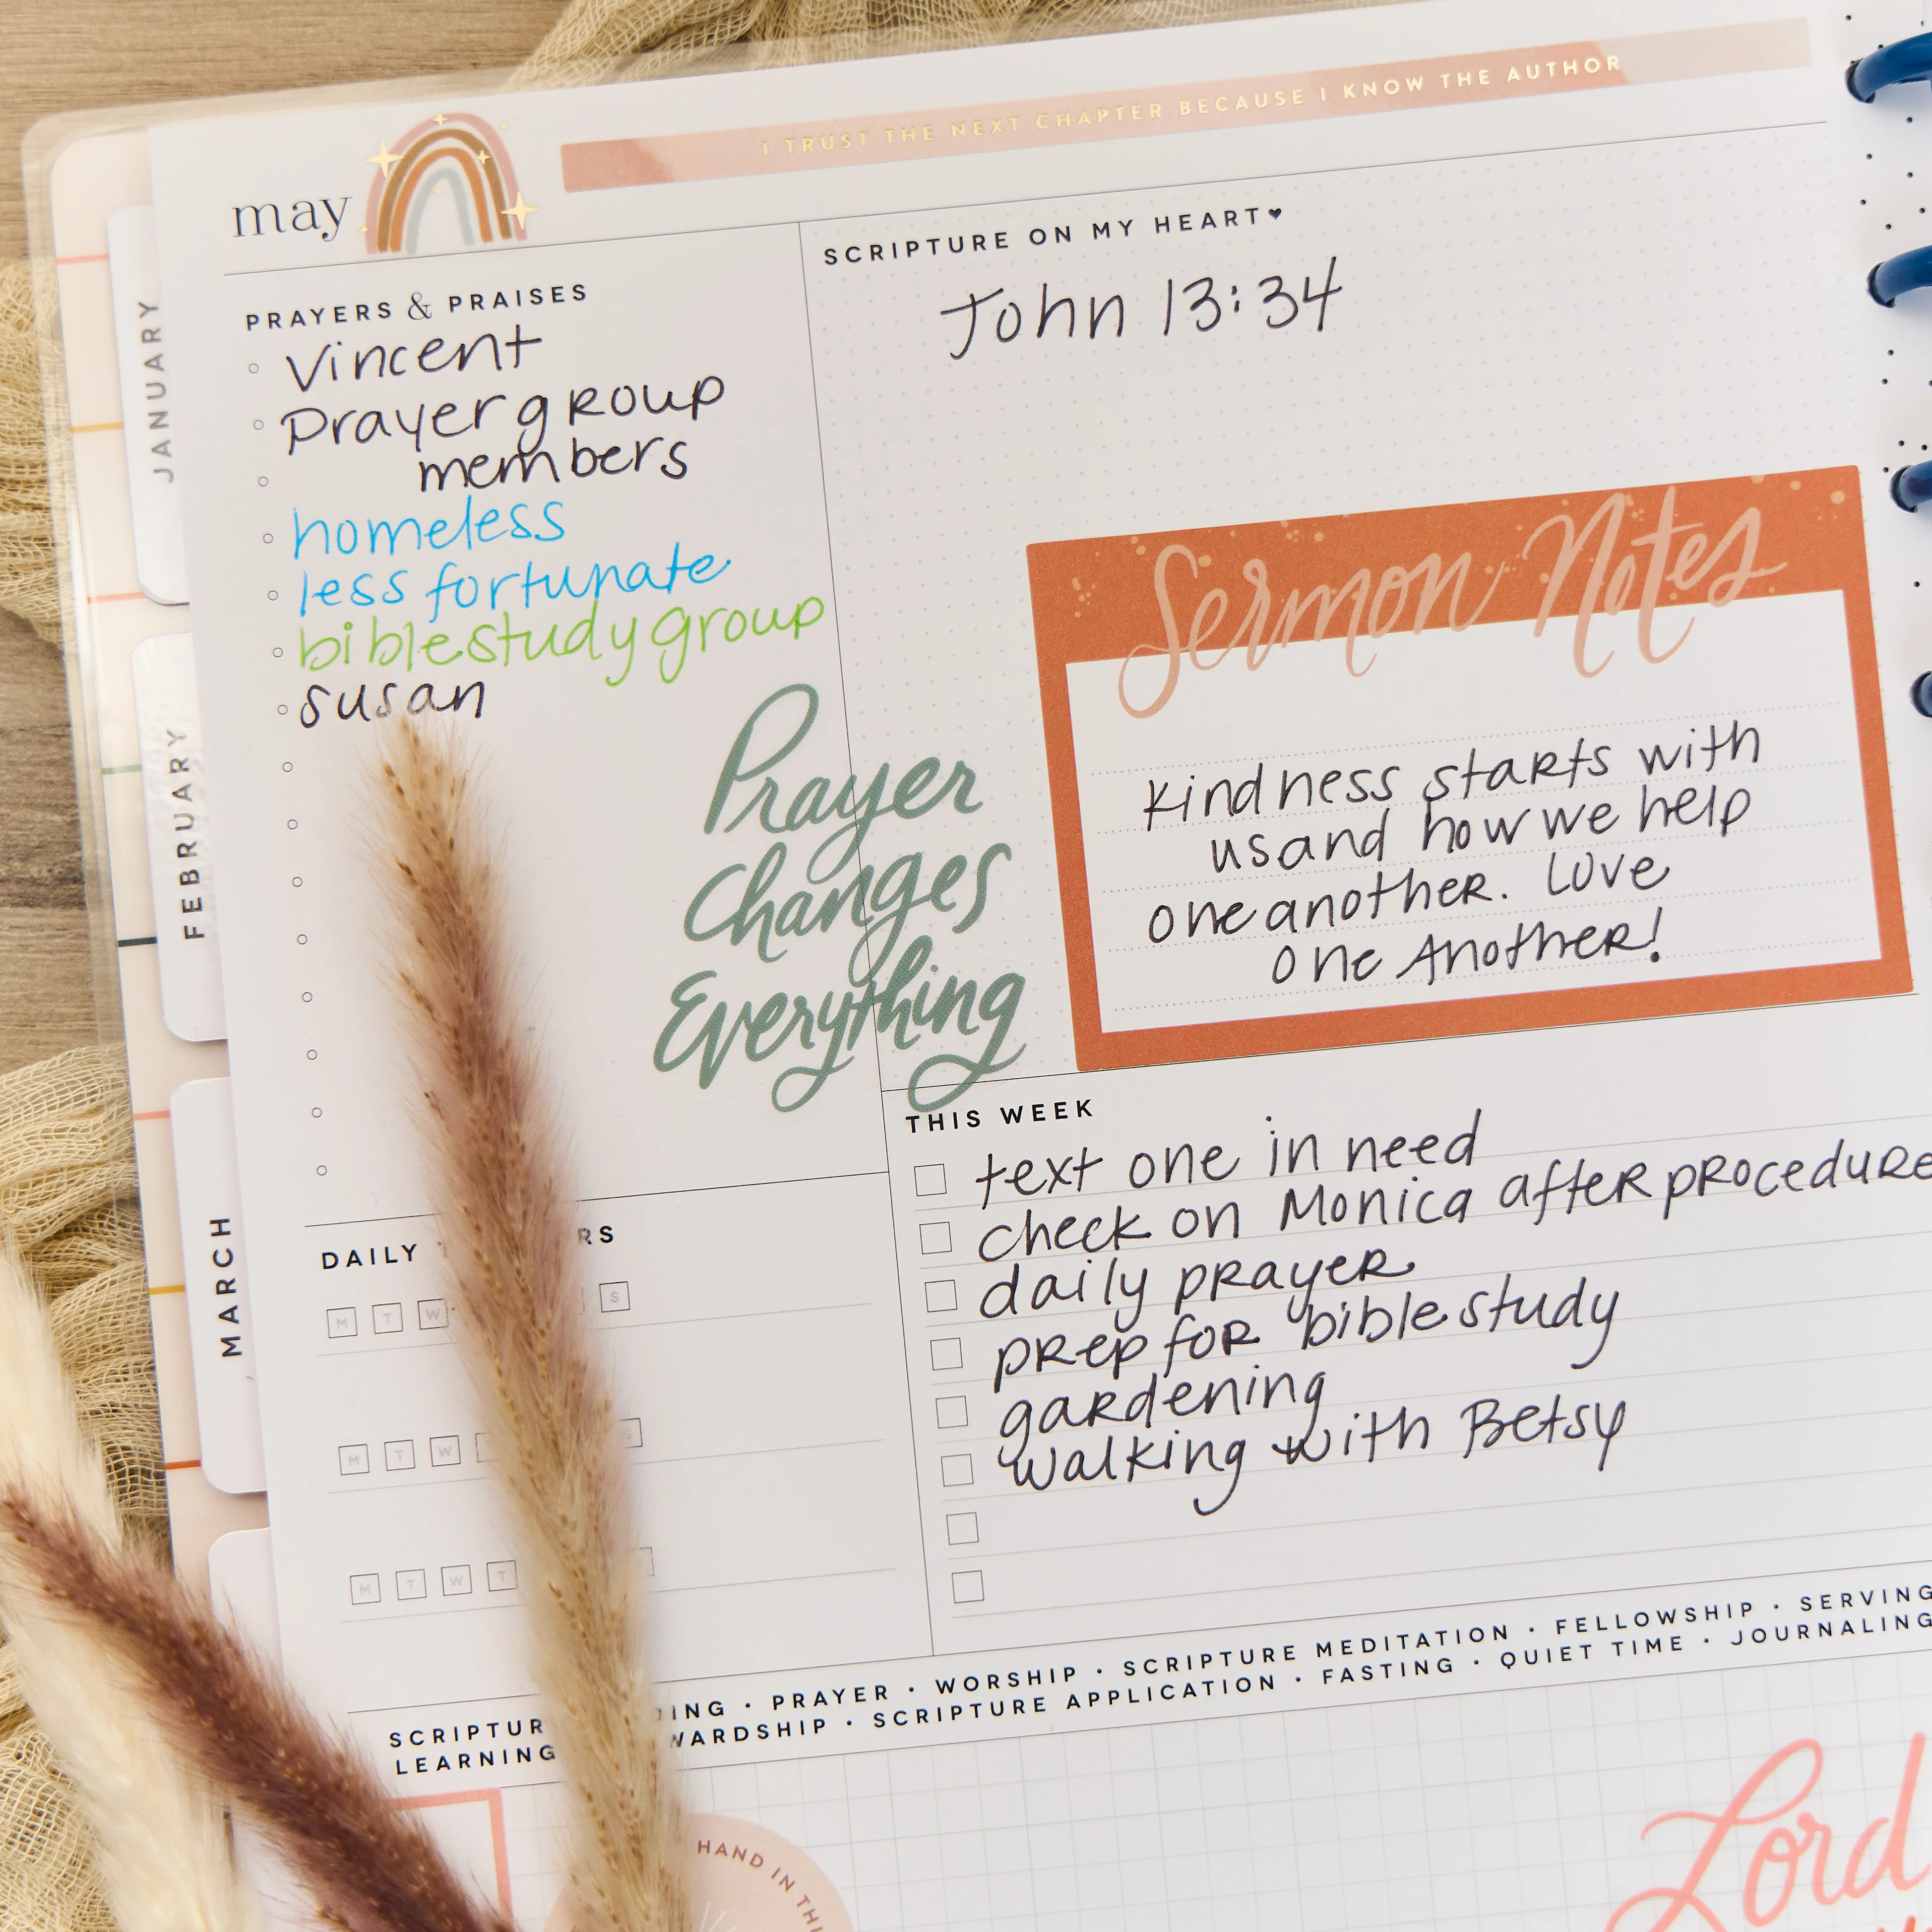 may
I TRUST THE NEXT CHAPTER BECAUSE I KNOW THE AUTHOR
JANUARY
FEBRUARY
MARCH
PRAYERS & PRAISES
Vincent
Prayer group
members
homeless
less fortunate
bible study group
susan
Prayer
Changes
Everything
SCRIPTURE ON MY HEART♥
John 13:34
Sermon Notes
Kindness starts with
us and how we help
one another. Love
one Another!
THIS WEEK
text one in need
check on Monica after procedure
daily prayer
prep for bible study
gardening
walking with Betsy
DAILY
M T W S
M T W
M T W T
PRAYER · WORSHIP · SCRIPTURE MEDITATION · FELLOWSHIP · SERVING
LEARNING SCRIPTURE APPLICATION · FASTING · QUIET TIME · JOURNALING
HAND IN
Lord